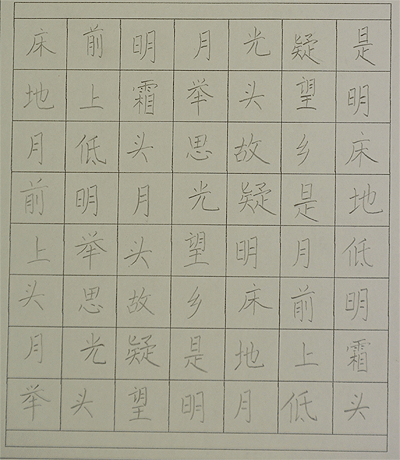 床前明月光疑是
地上霜举头望明
月低头思故乡床
前明月光疑是地
上举头望明月低
头思故乡床前明
月光疑是地上霜
举头望明月低头